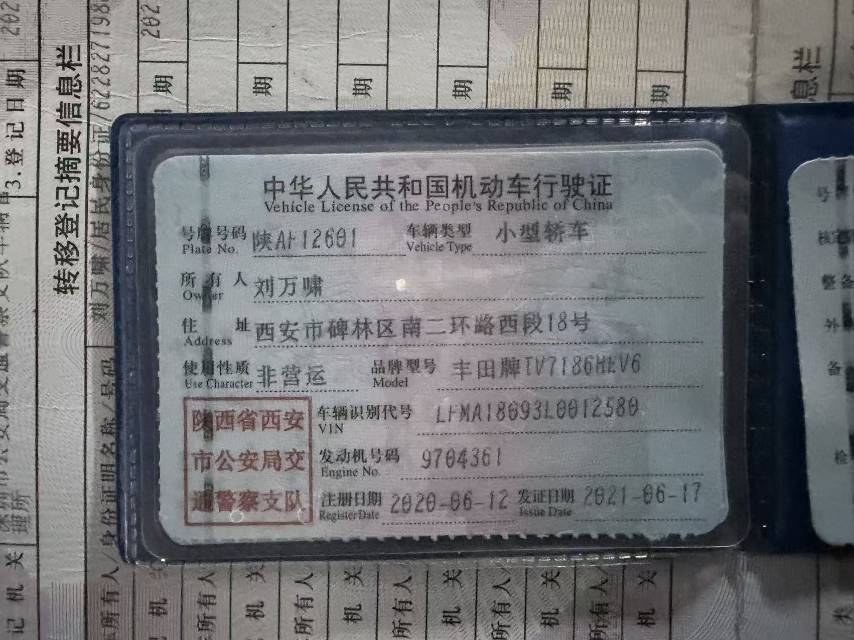 中华人民共和国机动车行驶证
Vehicle License of the People's Republic of China
号牌号码 陕AF12601 车辆类型 小型轿车
Plate No. Vehicle Type
所有人 刘万啸
Owner
住址 西安市碑林区南二环路西段18号
Address
使用性质 非营运 品牌型号 丰田牌TV7186HEV6
Use Character Model
陕西省西安
市公安局交
通警察支队
车辆识别代号 LFMA18093L0012580
VIN
发动机号码 9704361
Engine No.
注册日期 2020-06-12 发证日期 2021-06-17
Register Date Issue Date
转移登记摘要信息栏
3.登记日期
刘万啸/居民身份证/
信息栏